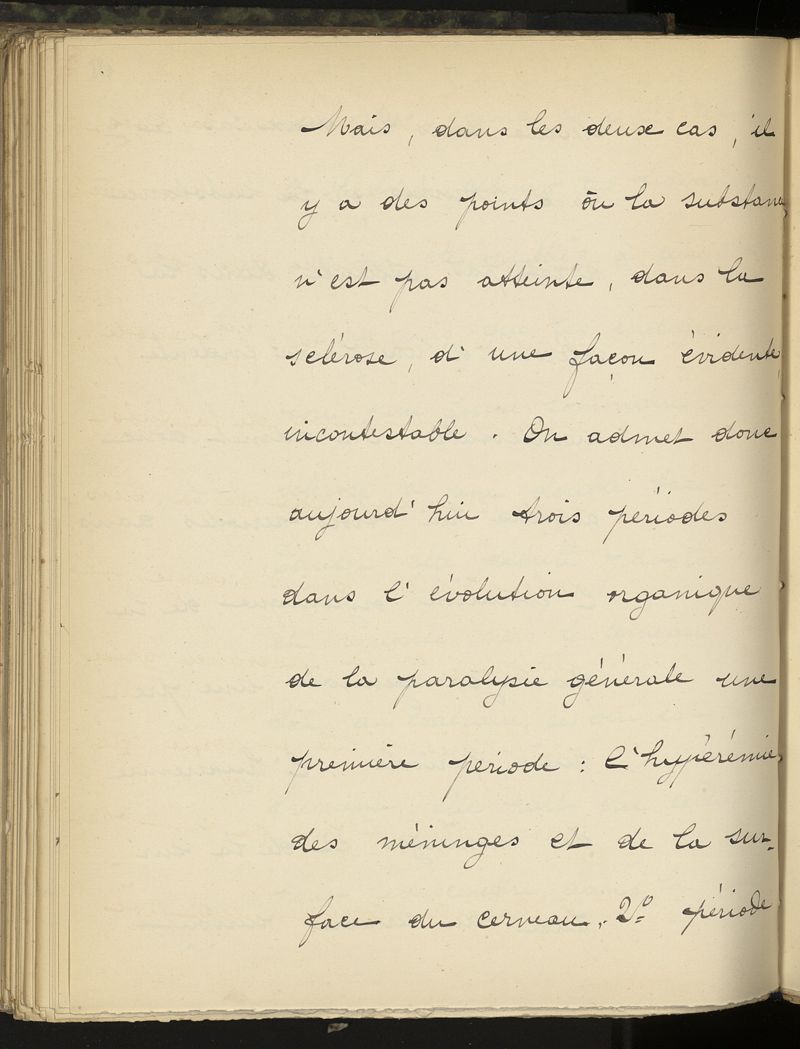 Mais, dans les deux cas, il
y a des points où la substance
n'est pas atteinte, dans la
sclérose, d'une façon évidente
incontestable. On admet donc
aujourd'hui trois périodes
dans l'évolution organique
de la paralysie générale une
première période : l'hypérémie
des méninges et de la sur-
face du cerveau. 2º période